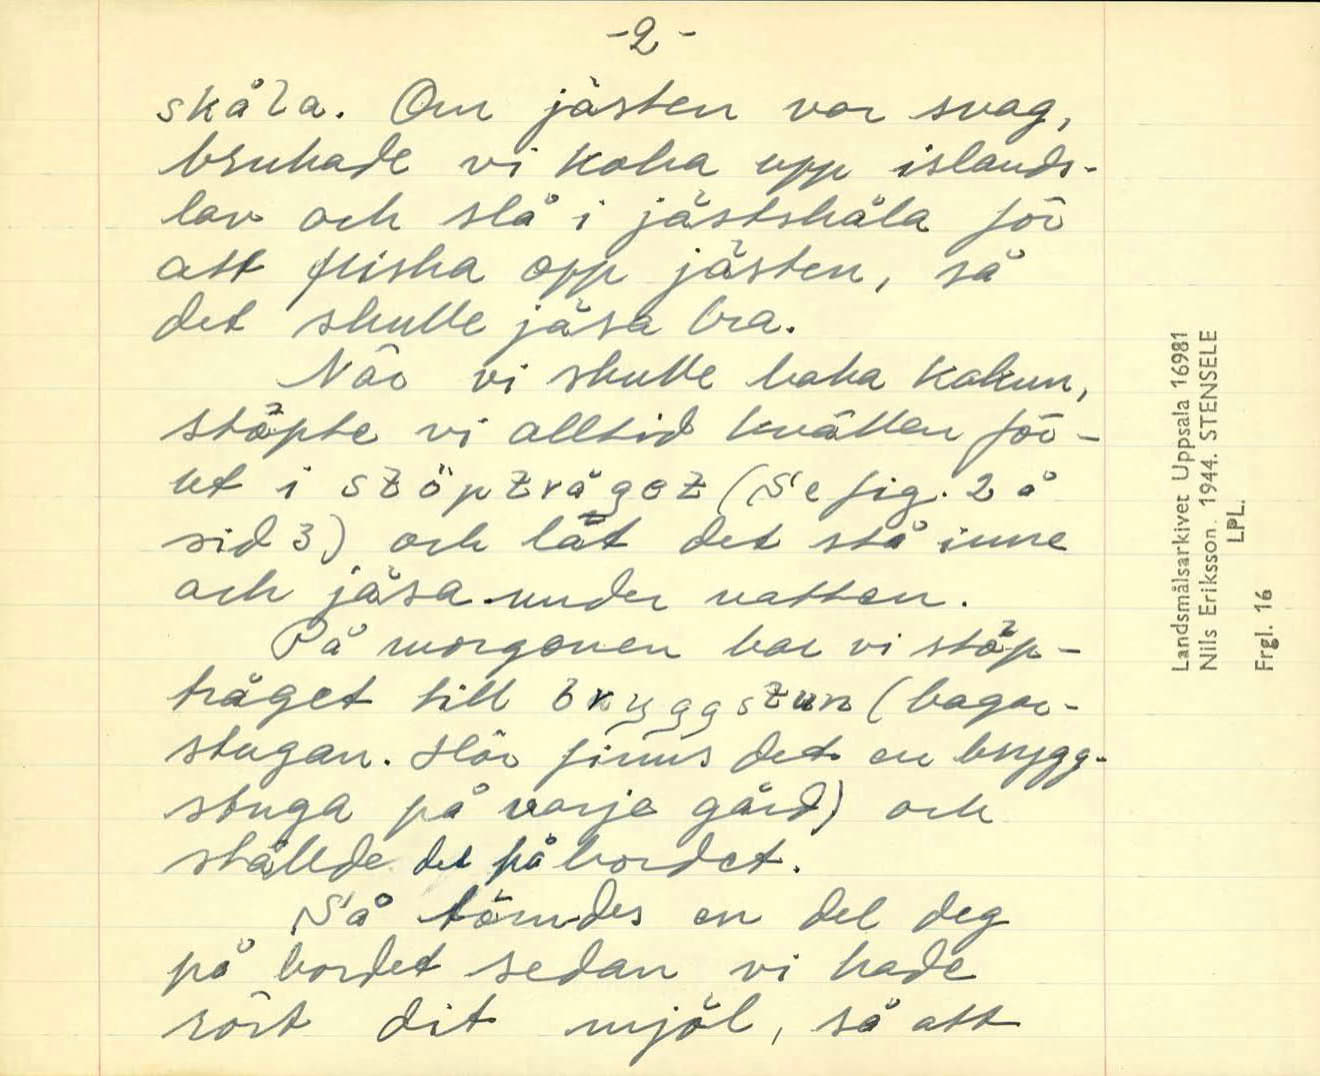 -2-
skåla. Om jästen var svag,
brukade vi koka upp islands-
lav och slå i jästskåla för
att friska opp jästen, så
det skulle jäsa bra.
När vi skulle baka kakun,
stöpte vi alltid kvällen för-
ut i stöptråget (Se fig. 2 å
sid 3) och låt det stå inne
och jäsa under natten.
På morgonen bar vi stöp-
tråget till bryggstun (bagar-
stugan. Här finns det en brygg-
stuga på varje gård) och
ställde det på bordet.
Så tömdes en del deg
på bordet sedan vi hade
rört dit mjöl, så att
Landsmålsarkivet Uppsala 16981
Nils Eriksson. 1944. STENSELE
LPL.
Frgl. 16